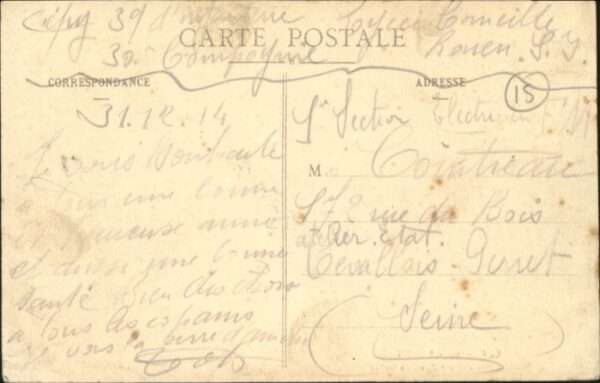 39 d'infanterie
Lycée Corneille
CARTE POSTALE
30e Compagnie
Rouen. S. I.
CORRESPONDANCE
ADRESSE
15
31.12.14
Section Electricien
Je vous souhaite
M. Cointreau
à tous une bonne
et heureuse année
et aussi une bonne
santé bien des choses
à tous les copains
je vous la serre
57 rue du Bois
at. Per. Etat.
Levallois-Perret
Seine